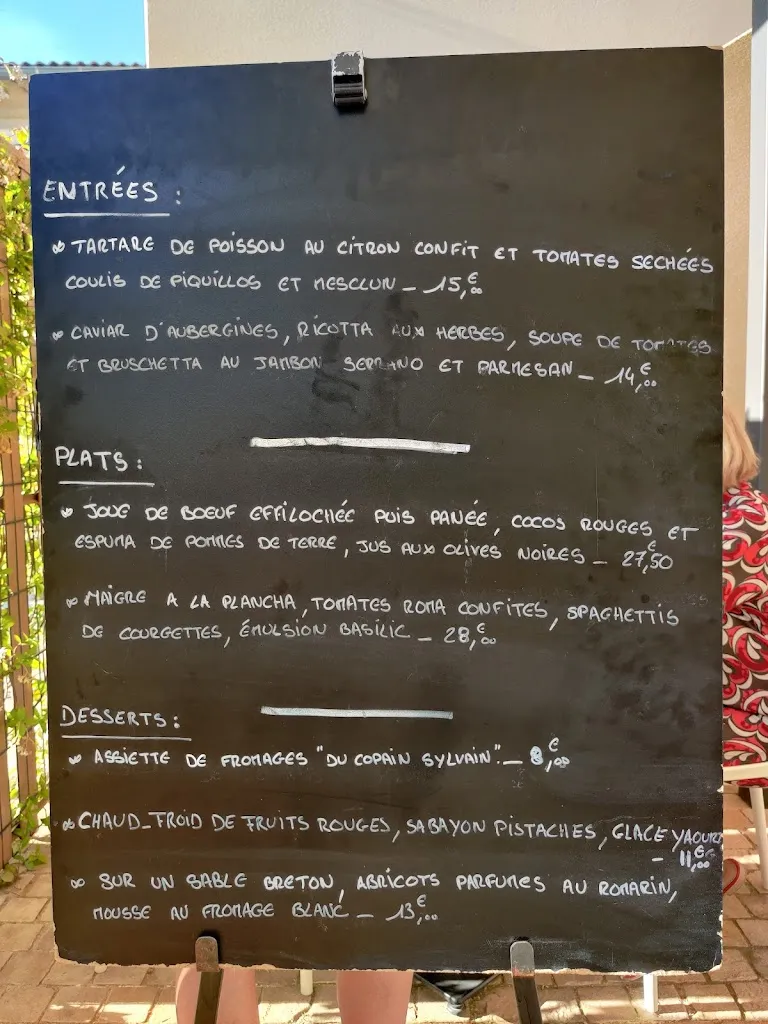 ENTRÉES :
TARTARE DE POISSON AU CITRON CONFIT ET TOMATES SECHÉES
COULIS DE PIQUILLOS ET MESCLUN - 15,€00
CAVIAR D'AUBERGINES, RICOTTA AUX HERBES, SOUPE DE TOMATES
ET BRUSCHETTA AU JAMBON SERRANO ET PARMESAN - 14,€00
PLATS :
JOUE DE BOEUF EFFILOCHÉE PUIS PANÉE, COCOS ROUGES ET
ESPUMA DE POMMES DE TERRE, JUS AUX OLIVES NOIRES - 27,€50
MAIGRE A LA PLANCHA, TOMATES ROMA CONFITES, SPAGHETTIS
DE COURGETTES, ÉMULSION BASILIC - 28,€00
DESSERTS :
ASSIETTE DE FROMAGES "DU COPAIN SYLVAIN" - 8,€00
CHAUD-FROID DE FRUITS ROUGES, SABAYON PISTACHES, GLACE YAOURT
- 11,€00
SUR UN SABLE BRETON, ABRICOTS PARFUMES AU ROMARIN,
MOUSSE AU FROMAGE BLANC - 13,€00